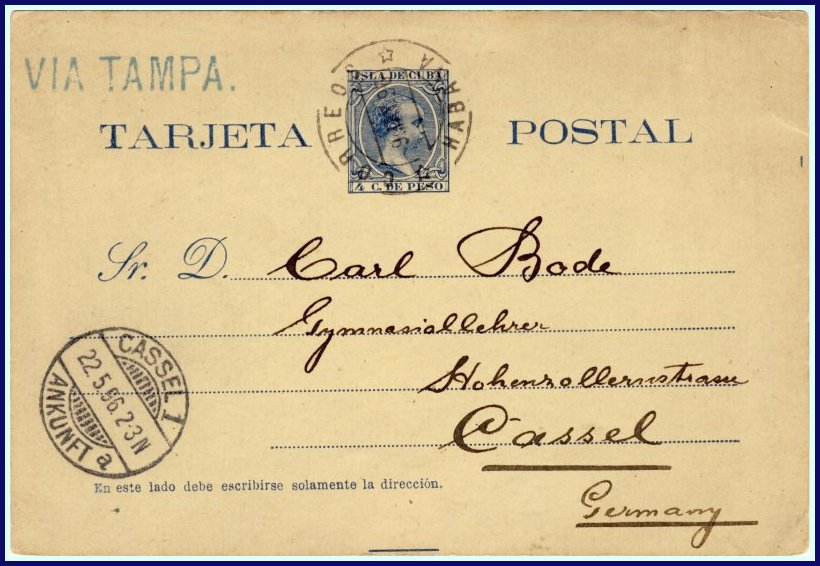 VIA TAMPA.
CORREOS HABANA
ISLA DE CUBA
4 C. DE PESO
TARJETA POSTAL
Sr. D. Carl Bode
Gymnasiallehrer
Hohenzollernstrasse
Cassel
Germany
CASSEL 1
22.5.96.2-3N
ANKUNFT a
En este lado debe escribirse solamente la dirección.